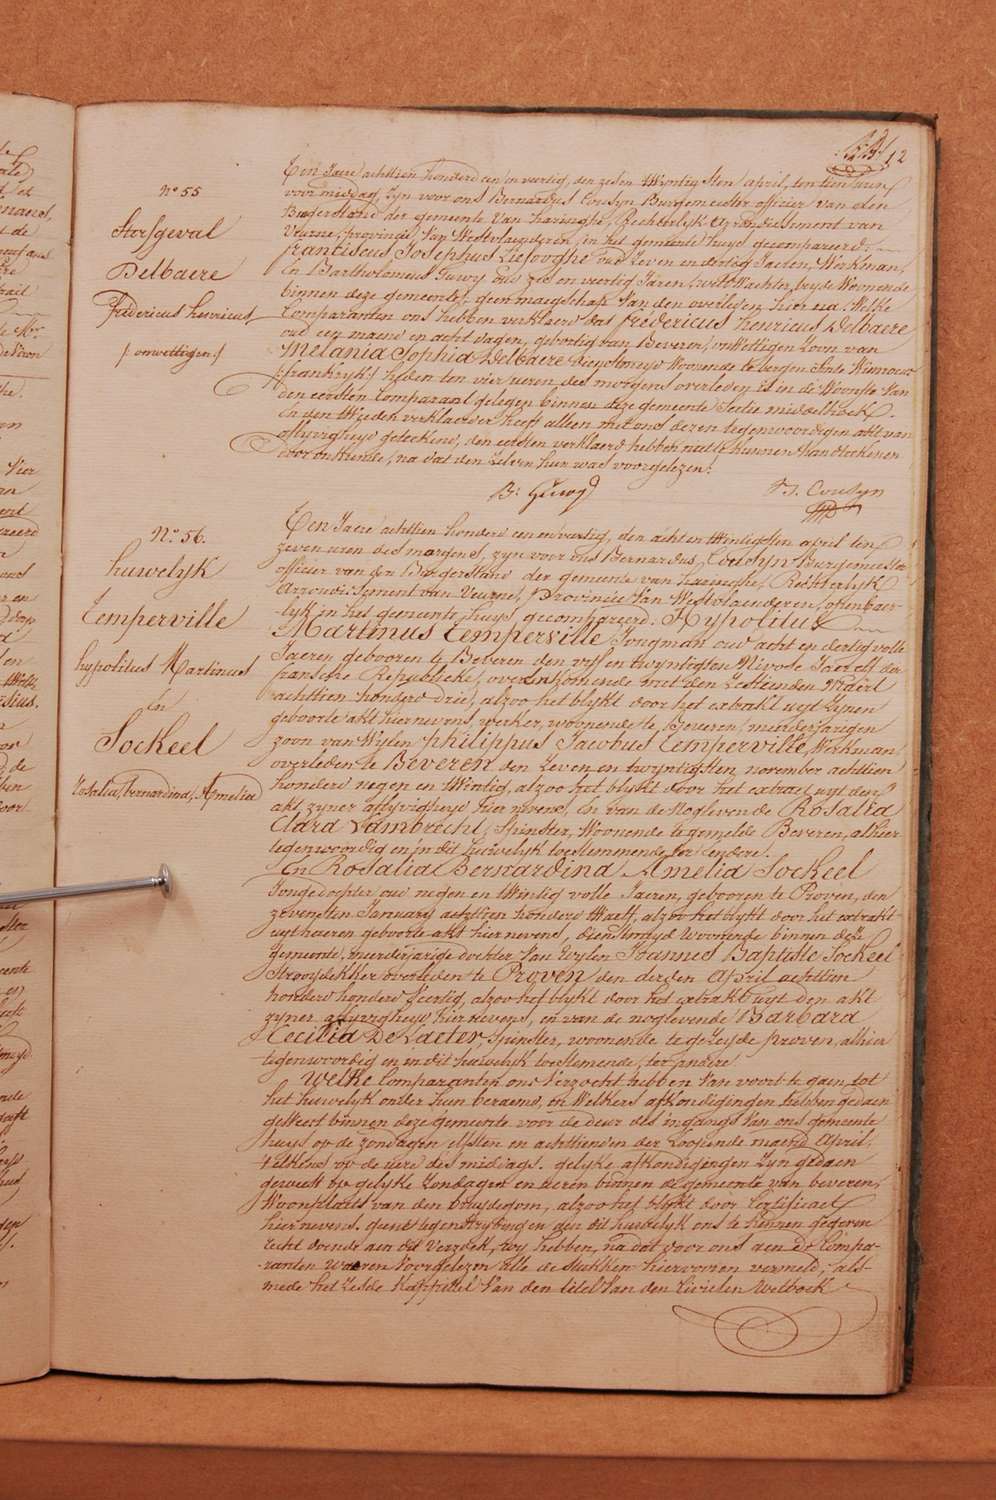 12
N° 55
Sterfgeval
Delbaere
Fredericus henricus
/: onwettigen :/
Ten Jaere achttien honderd een en veertig, den zes en Twyntigsten april, ten tien uren
voor middag, Zyn voor ons Bernardus Cousyn Burgemeester officier van den
Burgerstand der gemeente Van haringhe, Rechterlyk arrondissement van
Veurne, provincie Van Westvlaenderen, in het gemeente huys gecompareerd:
franciscus Josephus Liefooghe oud Zeven en dertig Jaeren, Werkman,
En Bartholomeus Huwy oud zes en veertig Jaren, veld Wachter, beyde Woonende
binnen deze gemeente, geen maegschap Van den overleden hier na, Welke
Comparanten ons hebben verklaerd dat frédericus henricus Delbaere
oud een maend en acht dagen, geboortig van Beveren, onWettigen Zoon van
Melania Sophia Delbaere dienstmeyd Woonende te bergen Sinte Winnocx
/:frankryk:/ heden ten vier uren des morgens overleden is in de Woonste Van
den eersten Comparant gelegen binnen deze gemeente Sectie middelhoek.
En den tWeeden verklaerder heeft alleen met ons dezen tegenwoordigen akt van
aflyvigheyd geteekend, den eersten verklaerd hebben niet te kunnen handteekenen
door onkunde, na dat den Zelven hun was voorgelezen.
B: Huwy
B. J. Cousyn
N° 56.
huwelyk
Temperville
hypolitus Martinus
En
Sockeel
Rosalia, bernardina, Amelia
Ten Jaere achttien honderd een en veertig, den acht en twintigsten april ten
zeven uren des morgens, zyn voor ons Bernardus Cousyn Burgemeester
officier van den Burgerstand der gemeente van haringhe, Rechterlyk
Arrondissement van Veurne, Provincie Van Westvlaenderen, openbaer-
-lyk in het gemeente huys gecompareerd. Hypolitus
Martinus Temperville Jongman oud acht en dertig volle
Jaeren gebooren te Beveren den vyf en twyntigsten Nivose Jaer elf der
fransche Republieke, overeenkomende met den Zestienden
achttien honderd drie, alzoo het blykt door het extrakt uyt Zynen
geboorte akt hiernevens, werker, woonende te Beveren, meerderjarigen
zoon van Wylen philippus Jacobus Temperville, Werkman
overleden te Beveren den Zeven en twyntigsten november achttien
honderd negen en Wintig, alzoo het blykt door het extrakt uyt den
akt zyner aflyvigheyd hier nevens, En van de Noglevende Rosalia
Clara Lambrecht, Spinster, Woonende te gemelde Beveren, alhier
tegenwoordig en in dit huwelyk toestemmende, ter Eendere.
En Rosalia Bernardina Amelia Sockeel
Jonge dochter oud negen en tWintig volle Jaeren, gebooren te Proven, den
zevensten January achttien honderd tWaelf, alzoo het blykt door het extrakt
uyt haeren geboorte akt hier nevens, dienstmeyd Woonende binnen deze
gemeente, meerderjarige dochter Van Wylen Joannes Baptiste Sockeel
Strooydekker overleden te Proven den derden April achttien
honderd honderd Veertig, alzoo het blykt door het extrakt uyt den akt
zyner aflyvigheyd hier nevens, en van de noglevende Barbara
Cecilia De Laeter, Spinster, woonende te gezeyde Proven, alhier
tegenwoordig en in dit huwelyk toestemmende, ter andere.
Welke Comparanten ons Verzocht hebben Van voort te gaen tot
het huwelyk onder hun beraemd, en Welkers afkondigingen hebben gedaen
geWeest binnen deze gemeente voor de deur des ingangs Van ons gemeente
huys op de zondagen elfsten en achttienden der Loopende maend April,
telkens op de uere des middags. gelyke afkondigingen Zyn gedaen
geweest op gelyke Zondagen en uren binnen de gemeente van beveren,
Woonplaets van den bruydegom, alzoo het blykt door Certificaet
hier nevens. geene tegenstrybingen aen dit huwelyk ons te kennen gegeven
recht doende aen dit Verzoek, wy hebben, na dat voor ons aen de Compa-
-ranten Waeren Voorgelezen alle de stukken hiervooren vermeld, als-
mede het Zesde Kappittel Van den titel Van den Civielen Wetboek